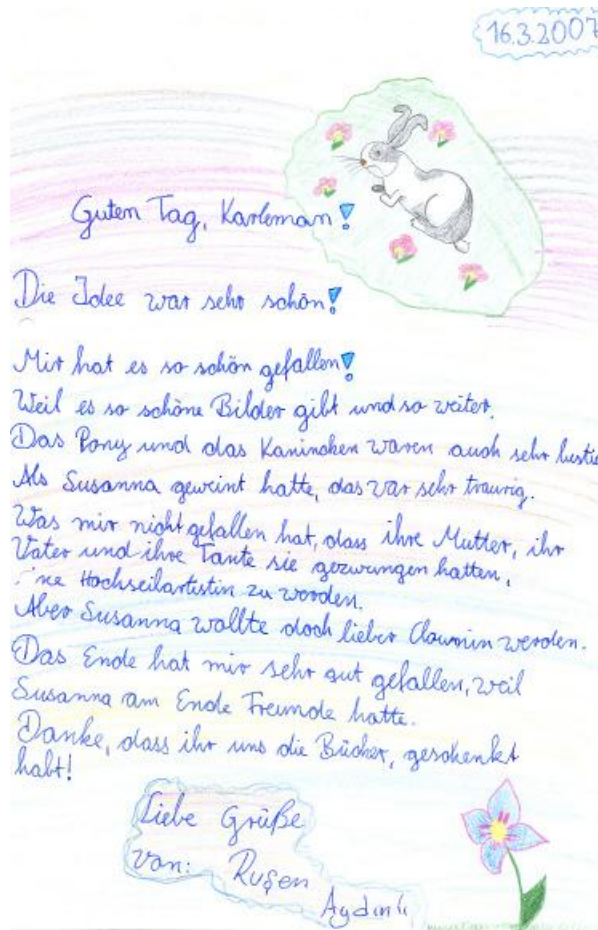 16.3.2007
Guten Tag, Karleman!
Die Idee war sehr schön!
Mir hat es so schön gefallen!
Weil es so schöne Bilder gibt und so weiter.
Das Pony und das Kaninchen waren auch sehr lustig
Als Susanna geweint hatte, das war sehr traurig.
Was mir nicht gefallen hat, dass ihre Mutter, ihr
Vater und ihre Tante sie gezwungen hatten,
ne Hochseilartistin zu werden.
Aber Susanna wollte doch lieber Clownin werden.
Das Ende hat mir sehr gut gefallen, weil
Susanna am Ende Freunde hatte.
Danke, dass ihr uns die Bücher, geschenkt
habt!
Liebe Grüße
von: Ruşen
Aydınlı